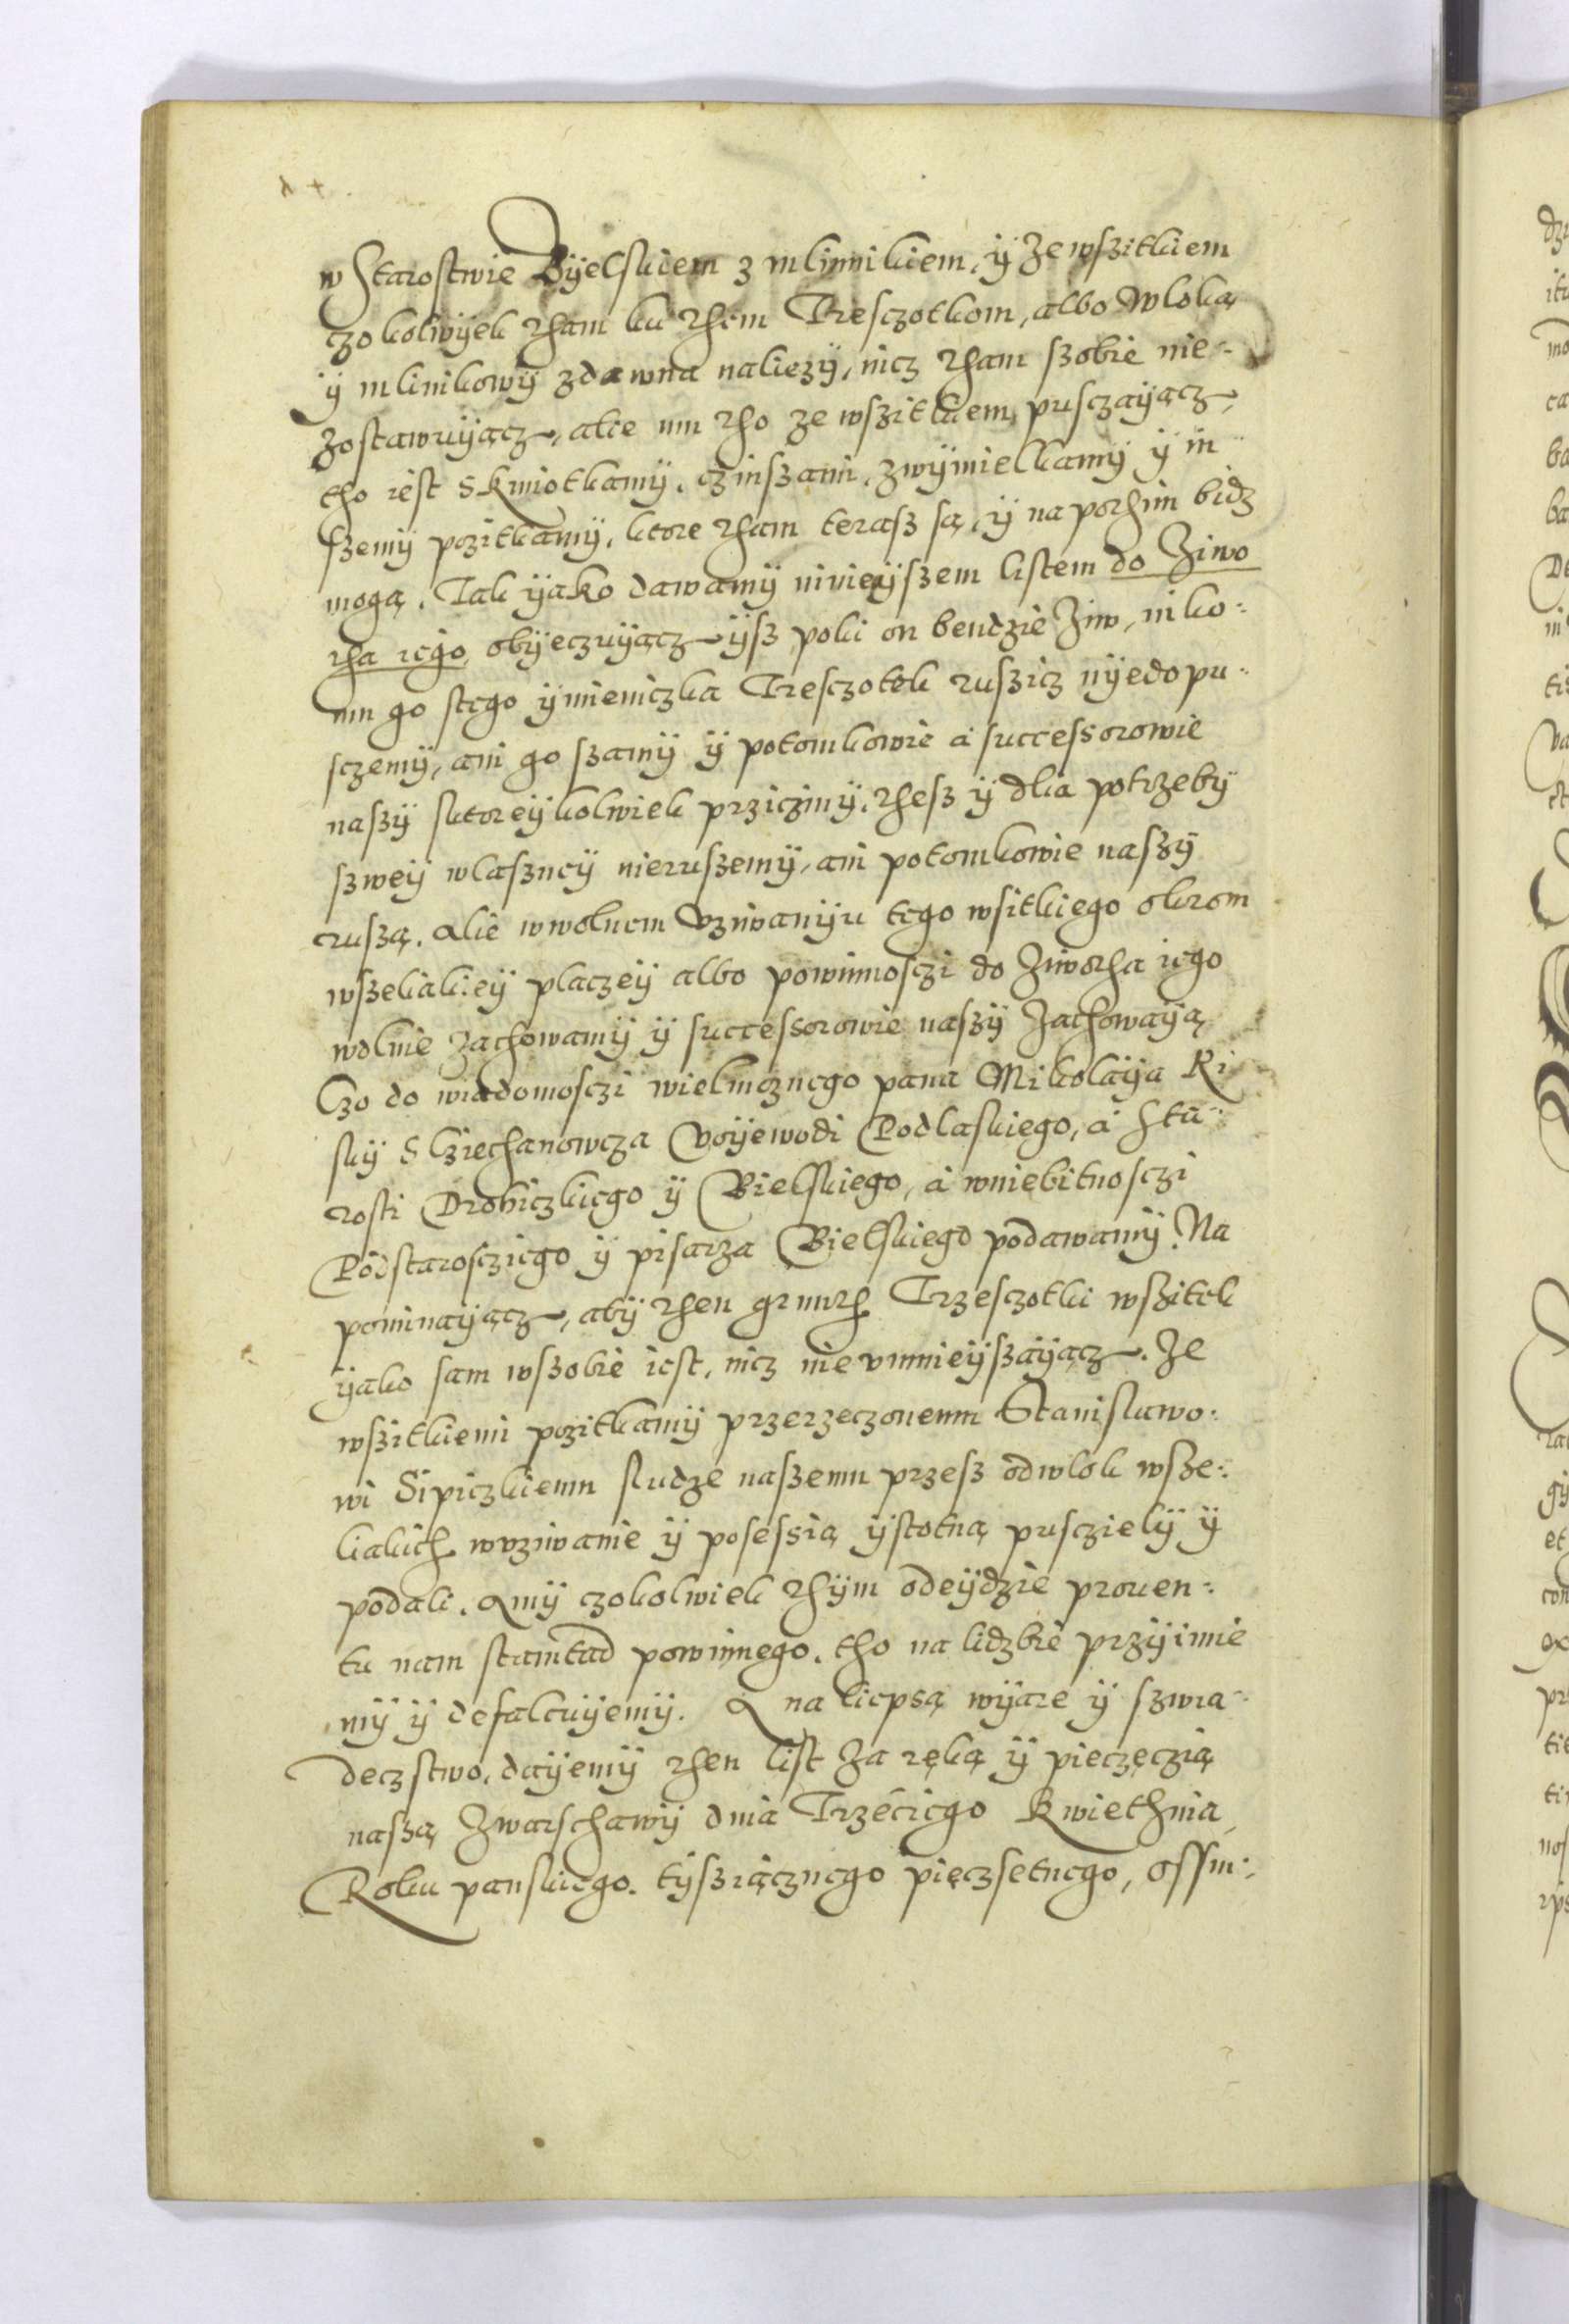 w Starostwie Byelskiem z mlinnikiem, ÿ ze wszitkiem
czokolwÿek tham ku them Tresczotkom, albo wloką
ÿ mlinikowÿ zdawna naliezÿ, nicz tham szobie nie-
zostawuÿącz, alie mu tho ze wszitkiem pusczaÿącz,
tho iest s kmiotkamÿ, czinszami, zwÿmielkamÿ ÿ in
szemÿ pozitkamÿ, ktore tham terasz są, ÿ na pothim bidz
mogą. Tak ÿako dawamÿ ninieÿszem listem do ziwo
tha iego, obÿeczuÿącz ÿsz poki on bendzie ziw, niko:
mu go stego ÿmieniczka Tresczotek ruszicz nÿedopu-
sczemÿ, ani go szamÿ ÿ potomkowie a successorowie
naszÿ sktoreÿkolwiek prziczinÿ, thesz ÿ dlia potrzebÿ
szweÿ wlaszneÿ nieruszemÿ, ani potomkowie naszÿ
rusza. Alie wwolnem vziwanÿu tego wsitkiego okrom
wszeliakieÿ placzeÿ albo powinnosczi do ziwotha iego
wolnie zachowamÿ ÿ successorowie naszÿ zachowaÿą
Czo do wiadomosczi wielmoznego pana Mikolaÿa Ki
skÿ s Cziechanowcza Voÿewodi Podlaskiego, a Sta
rosti Drohiczkiego ÿ Bielskiego, a wniebitnosczi
Podstarosczięgo ÿ pisarza Bielskiego podawamÿ. Na
pominaÿącz, abÿ then grunth Trzesczotki wszitek
ÿako sam wszobie iest, nicz nie vmnieÿszaÿącz. Ze
wszitkiemi pozitkamÿ przerzeczonemu Stanislawo:
wi Sipiczkiemu sludze naszemu przesz odwlok wsze:
liakich wvziwanie ÿ posessią ÿstotną pusczielÿ ÿ
podali. A mÿ czokolwiek thÿm odeÿdzie prouen:
tu nam stamtad powinnego, tho na lidzbie przÿimie
mÿ ÿ defalcuÿemÿ. A na liepsą wÿare ÿ szwia-
deczstwo, daÿemÿ then list za ręką ÿ pieczęczią
naszą zwarschawÿ dnia Trzeciego Kwiethnia,
Roku panskiego, tÿsziącznego pięczsetnego, ossm: